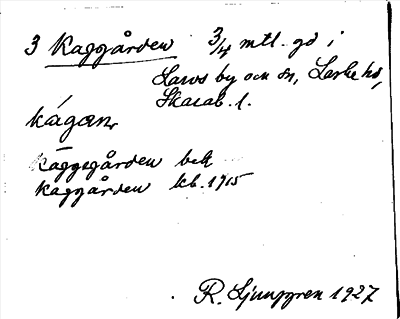 3 Kaggården 3/4 mtl. gd i
Larvs by och sn, Laske hd,
Skarab. l.
kágæn,
Kaggegården bet
Kaggården kb. 1715
R. Ljunggren 1927